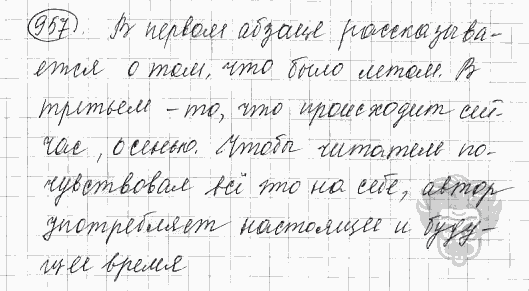 957) В первом абзаце рассказыва-
ется о том, что было летом. В
третьем - то, что происходит сей-
час, осенью. Чтобы читатель по-
чувствовал всё это на себе, автор
употребляет настоящее и буду-
щее время